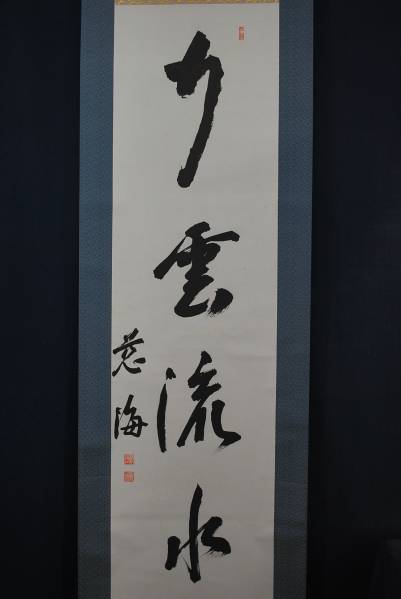 行雲流水
慈海